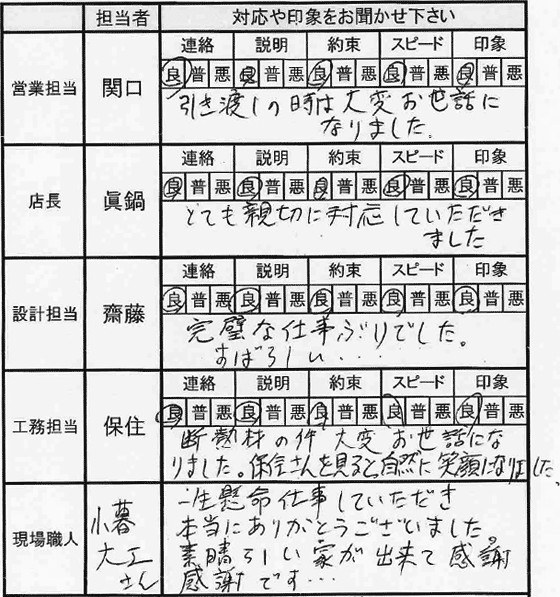 担当者 対応や印象をお聞かせ下さい
営業担当 関口
連絡 説明 約束 スピード 印象
良 普 悪 良 普 悪 良 普 悪 良 普 悪 良 普 悪
引き渡しの時は大変お世話に
なりました。
店長 眞鍋
連絡 説明 約束 スピード 印象
良 普 悪 良 普 悪 良 普 悪 良 普 悪 良 普 悪
とても親切に対応していただき
ました
設計担当 齋藤
連絡 説明 約束 スピード 印象
良 普 悪 良 普 悪 良 普 悪 良 普 悪 良 普 悪
完璧な仕事ぶりでした。
すばらしい....
工務担当 保住
連絡 説明 約束 スピード 印象
良 普 悪 良 普 悪 良 普 悪 良 普 悪 良 普 悪
断熱材の件 大変お世話にな
りました。保住さんを見ると、自然に笑顔になりました、
現場職人 小暮
大工
さん
一生懸命仕事していただき
本当にありがとうございました。
素晴らしい家が出来て感謝
感謝です...